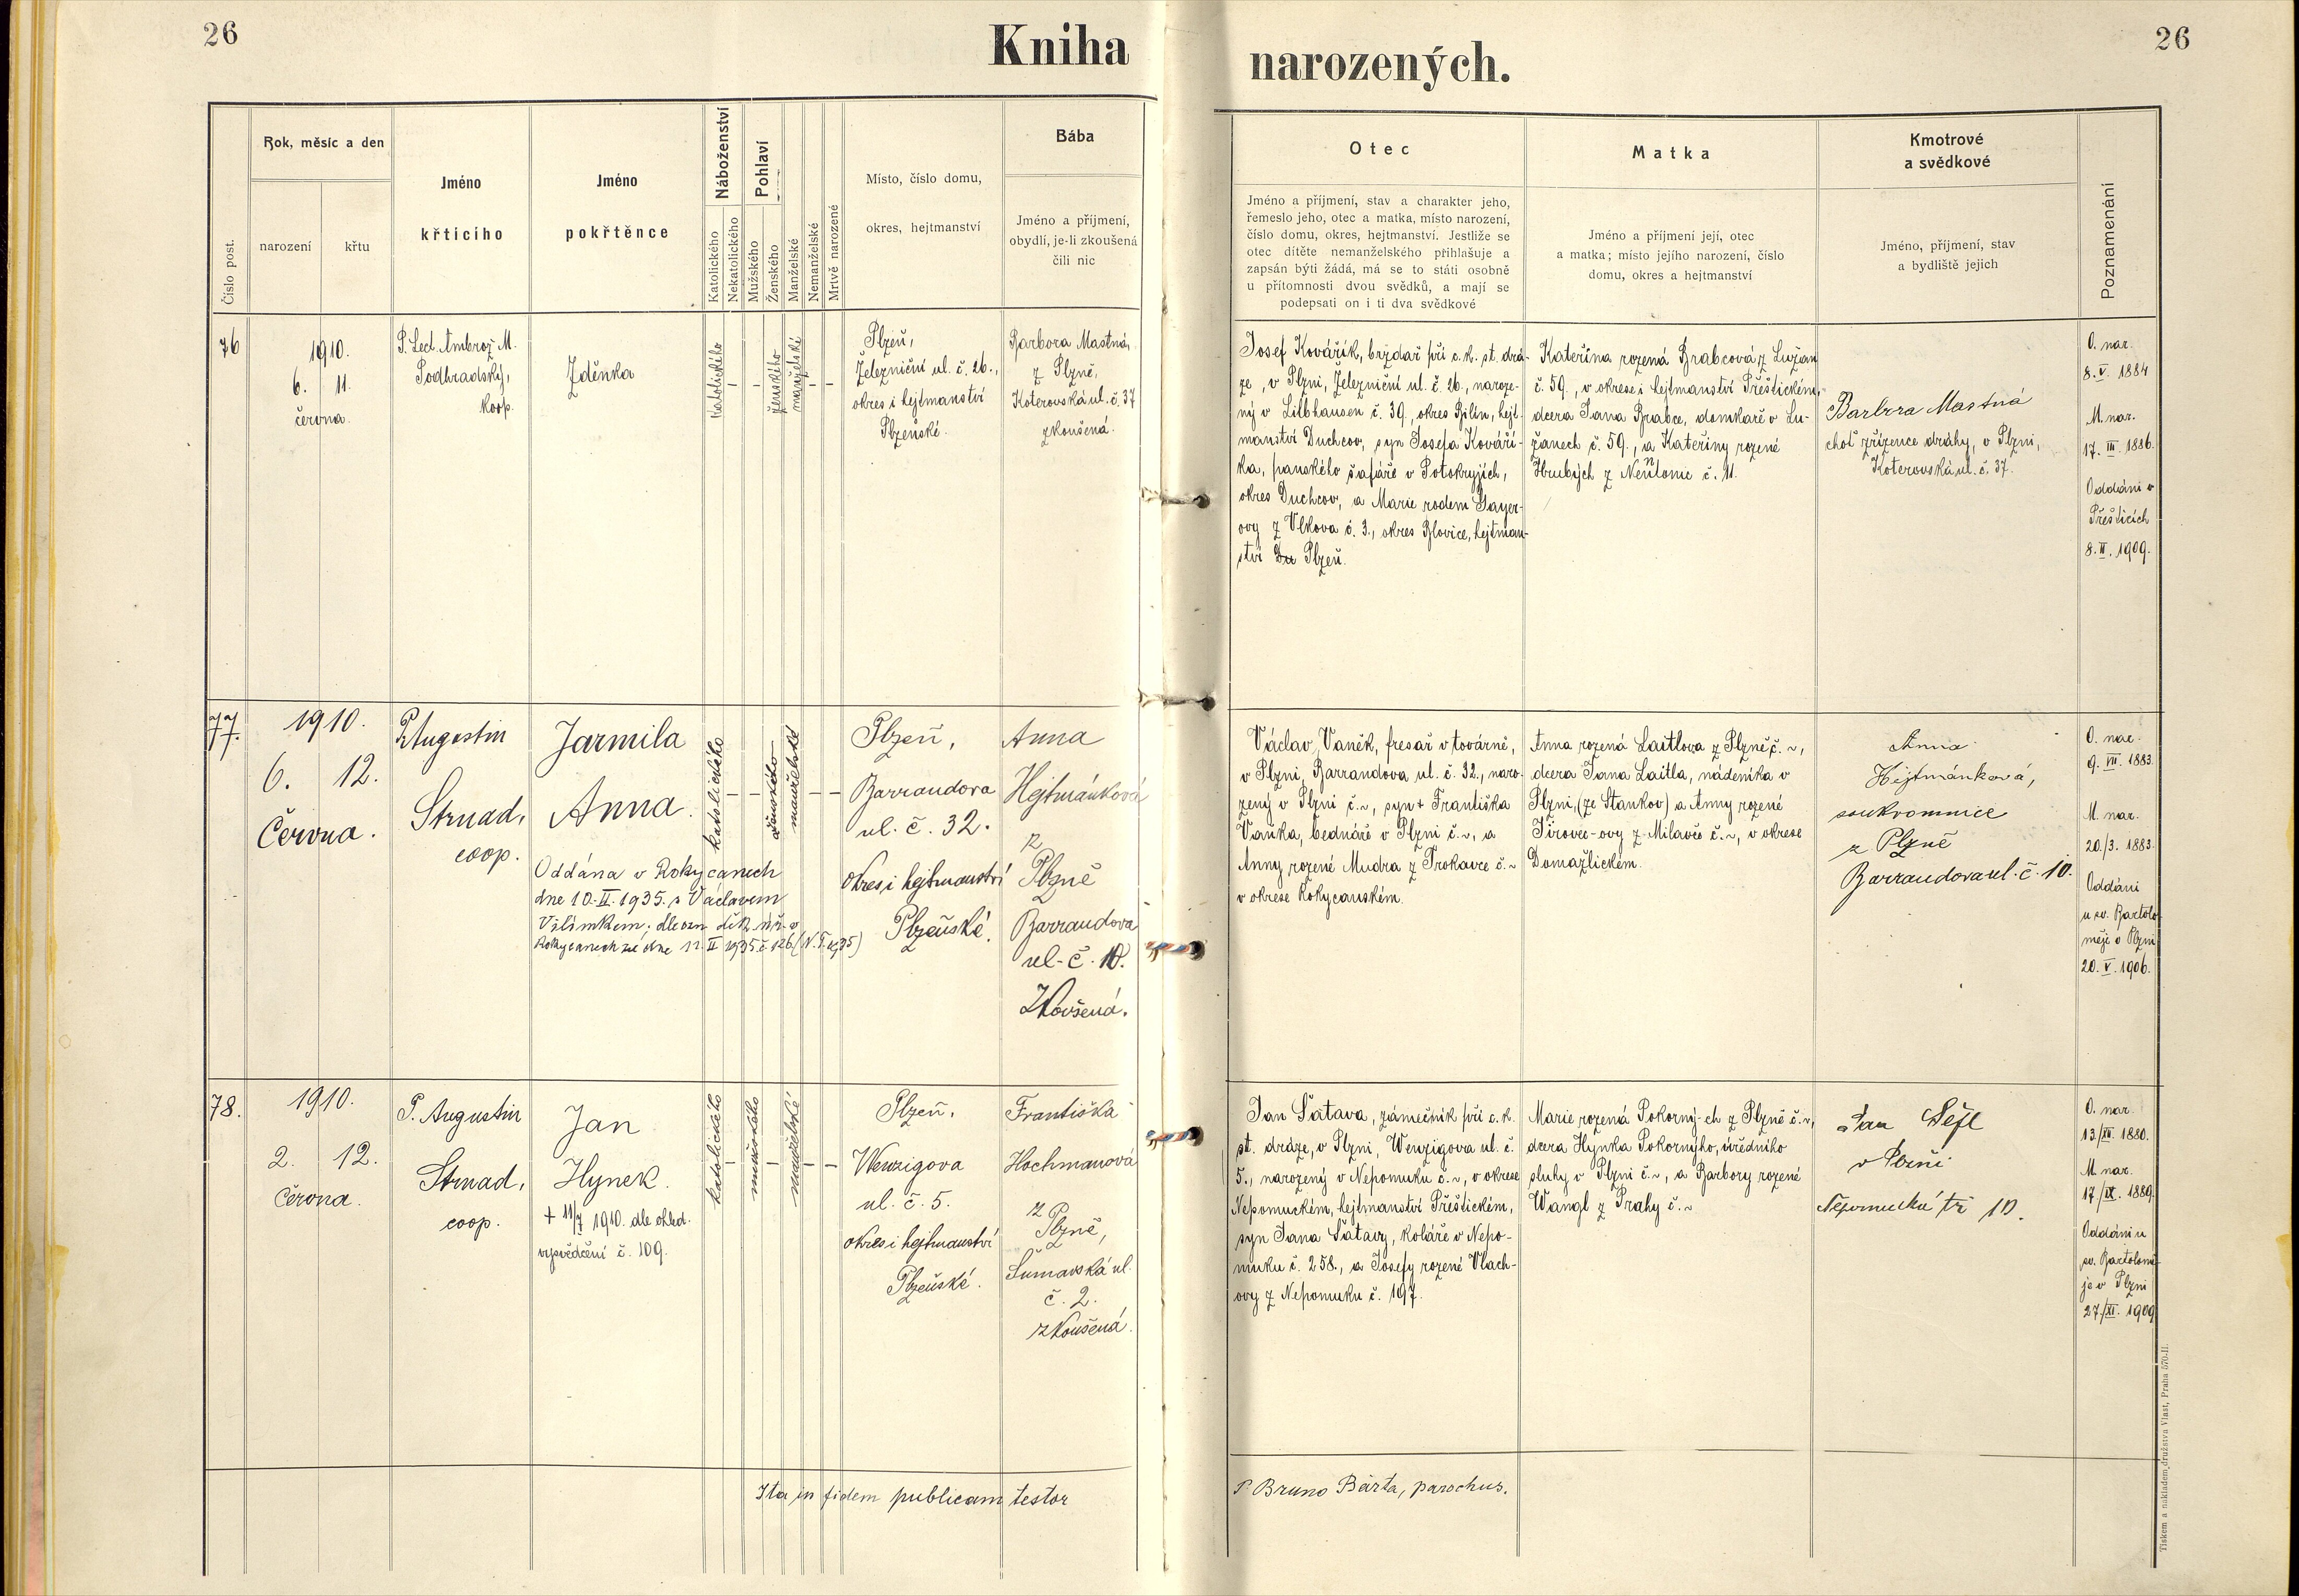 26
Kniha narozených.
26
Číslo post.
Rok, měsíc a den
narození
křtu
Jméno
křticího
Jméno
pokřtěnce
Náboženství
Katolického
Nekatolického
Pohlaví
Mužského
Ženského
Manželské
Nemanželské
Mrtvě narozené
Místo, číslo domu,
okres, hejtmanství
Bába
Jméno a příjmení,
obydlí, je-li zkoušená
čili nic
Otec
Jméno a příjmení, stav a charakter jeho,
řemeslo jeho, otec a matka, místo narození,
číslo domu, okres, hejtmanství. Jestliže se
otec dítěte nemanželského přihlašuje a
zapsán býti žádá, má se to státi osobně
u přítomnosti dvou svědků, a mají se
podepsati on i ti dva svědkové
Matka
Jméno a příjmení její, otec
a matka; místo jejího narození, číslo
domu, okres a hejtmanství
Kmotrové
a svědkové
Jméno, příjmení, stav
a bydliště jejich
Poznamenání
76
1910.
6. 11.
června.
P. Led. Ambrož M.
Podhradský,
koop.
Zděnka
katolického
–
–
ženského
manželské
– –
Plzeň,
Železniční ul. č. 26.,
okres i hejtmanství
Plzeňské.
Barbora Mastná,
z Plzně,
Koterovská ul. č. 37
zkoušená.
Josef Kovářík, brzdař při c. k. st. drá-
ze, v Plzni, Železniční ul. č. 26., naroze-
ný v Libhausen č. 39, okres Bilín, hejt-
manství Duchcov, syn Josefa Kováří-
ka, panského šafáře v Potokryjích,
okres Duchcov, a Marie rodem Bayer-
ovy z Vlkova č. 3., okres Blovice, hejtman-
ství Du Plzeň.
Kateřina rozená Brabcová z Lužan
č. 59., v okrese i hejtmanství Přeštickém,
dcera Jana Brabce, domkaře v Lu-
žanech č. 59., a Kateřiny rozené
Hrubých z č. 11.
Barbora Mastná
choť zřízence dráhy, v Plzni,
Koterovská ul. č. 37.
O. nar.
8. V. 1884
M. nar.
17. III. 1886.
Oddáni v
Přešticích
8. II. 1909.
77.
1910.
6. 12.
Června.
P. Augustin
Strnad,
coop.
Jarmila
Anna.
Oddána v Rokycanech
dne 10. II. 1935. s Václavem
Vilímkem; dle ozn. děk. úř. v
Rokycanech ze dne 12. II 1935. č. 126
katolického
– –
ženského
manželské
– –
Plzeň,
Barrandova
ul. č. 32.
okres i hejtmanství
Plzeňské.
Anna
Hejtmánková
z
Plzně
Barrandova
ul. č. 10.
Zkoušená.
Václav Vaněk, fresař v továrně,
v Plzni, Barrandova ul. č. 32., naro-
zený v Plzni č. ~, syn + Františka
Vaňka, bednáře v Plzni č. ~, a
Anny rozené Mudra z Trokavce č. ~
v okrese Rokycanském.
Anna rozená Laitlova z Plzně č. ~,
dcera Jana Laitla, nádeníka v
Plzni, (ze Stankov) a Anny rozené
Jírovec-ovy z Milavče č. ~, v okrese
Domažlickém.
Anna
Hejtmánková,
soukromnice
z Plzně
Barrandova ul. č. 10.
O. nar.
9. VII. 1883.
M. nar.
20./3. 1883.
Oddáni
u sv. Bartolo-
měje v Plzni
20. V. 1906.
78.
1910.
2. 12.
Června.
P. Augustin
Strnad,
coop.
Jan
Hynek.
+ 11/7 1910. dle ohled.
vysvědčení č. 109.
katolického
–
mužského
–
manželské
– –
Plzeň,
Wenzigova
ul. č. 5.
okres i hejtmanství
Plzeňské.
Františka
Hochmanová
z
Plzně,
Šumavská ul.
č. 2.
zkoušená.
Jan Šatava, zámečník při c. k.
st. dráze, v Plzni, Wenzigova ul. č.
5., narozený v Nepomuku č. ~, v okrese
Nepomuckém, hejtmanství Přeštickém,
syn Jana Šatavy, koláře v Nepo-
muku č. 258., a Josefy rozené Vlach-
ovy z Nepomuku č. 197.
Marie rozená Pokorný-ch z Plzně č. ~,
dcera Hynka Pokorného, úředního
sluhy v Plzni č. ~, a Barbory rozené
Wangl z Prahy č. ~
Jan
v Plzni
Nepomucká tř. 10.
O. nar.
M. nar.
17./IX. 1889.
Oddáni u
sv. Bartolomě-
je v Plzni
27./XI. 1909
Ita in fidem publicam testor
P. Bruno Bárta, parochus.
Tiskem a nákladem družstva Vlast, Praha 570-II.